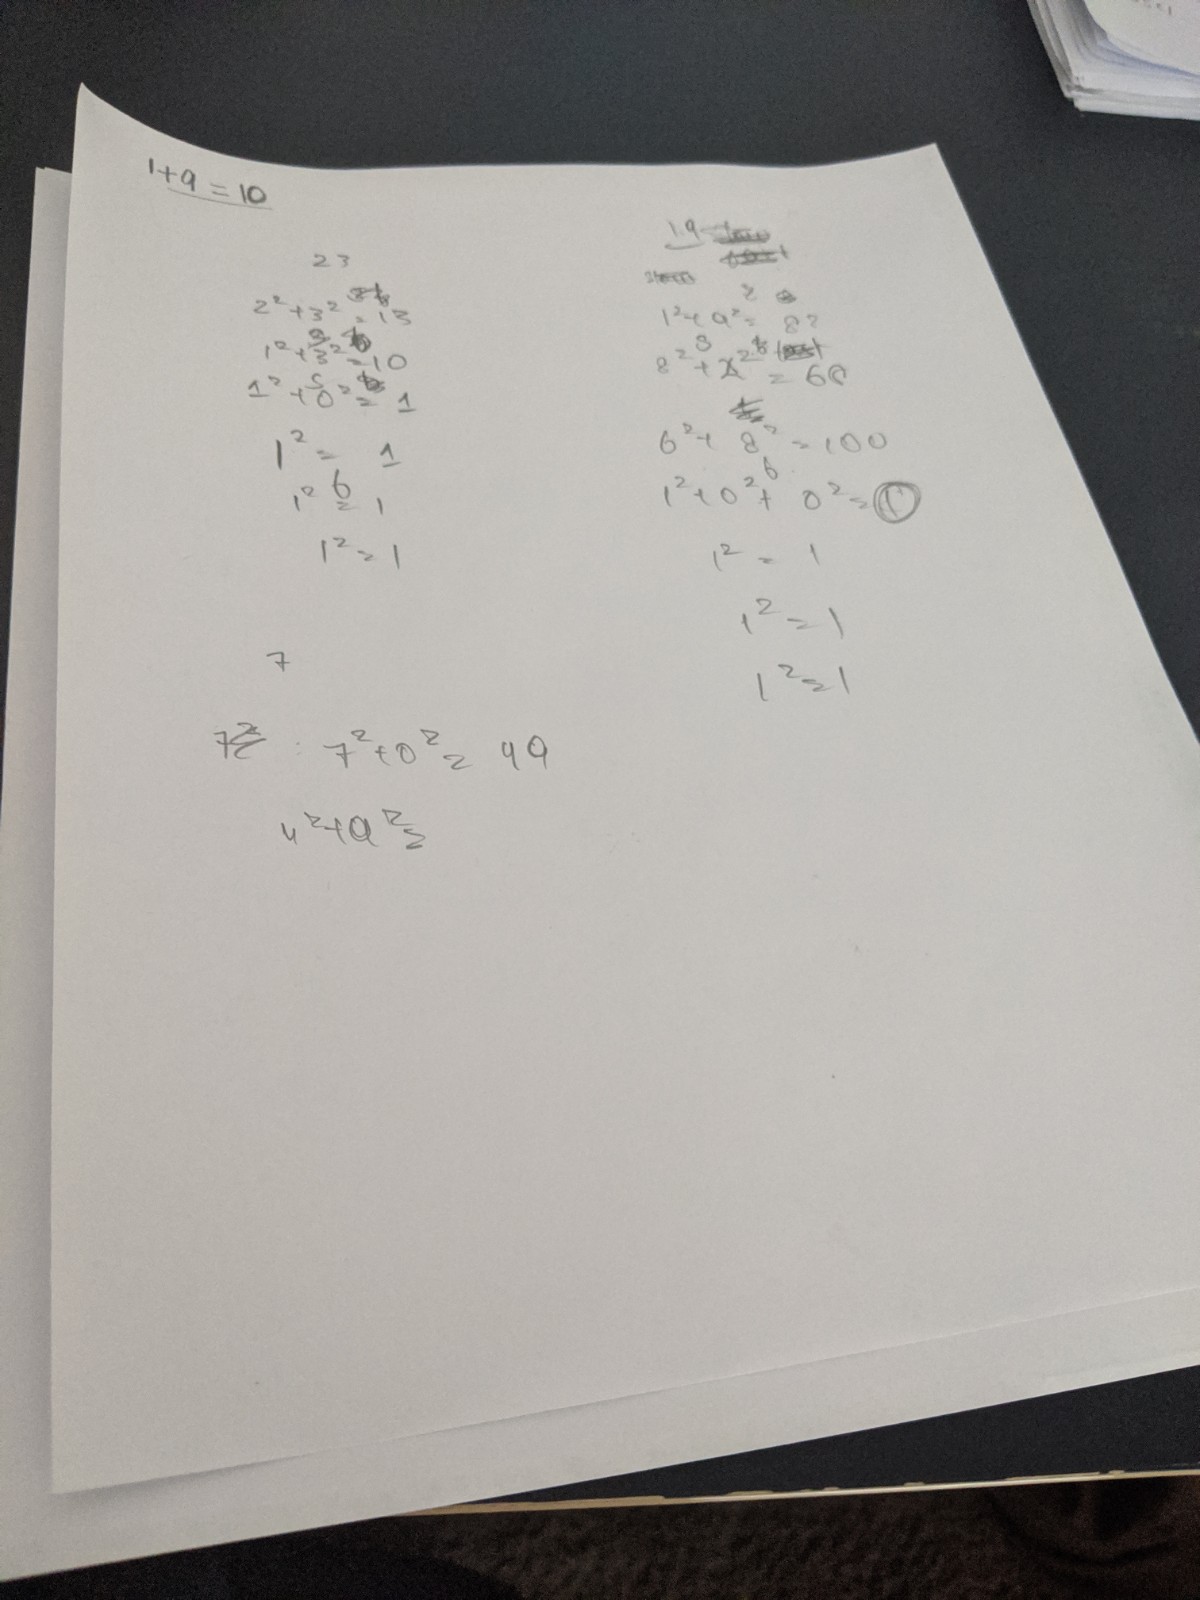 1+9 = 10
23
2² + 3² = 13
1² + 3² = 10
1² + 0² = 1
1² = 1
1² = 1
1² = 1
7
7² : 7² + 0² = 49
4² + 9² =
19
1² + 9² = 82
8² + 2² = 68
6² + 8² = 100
1² + 0² + 0² = 1
1² = 1
1² = 1
1² = 1